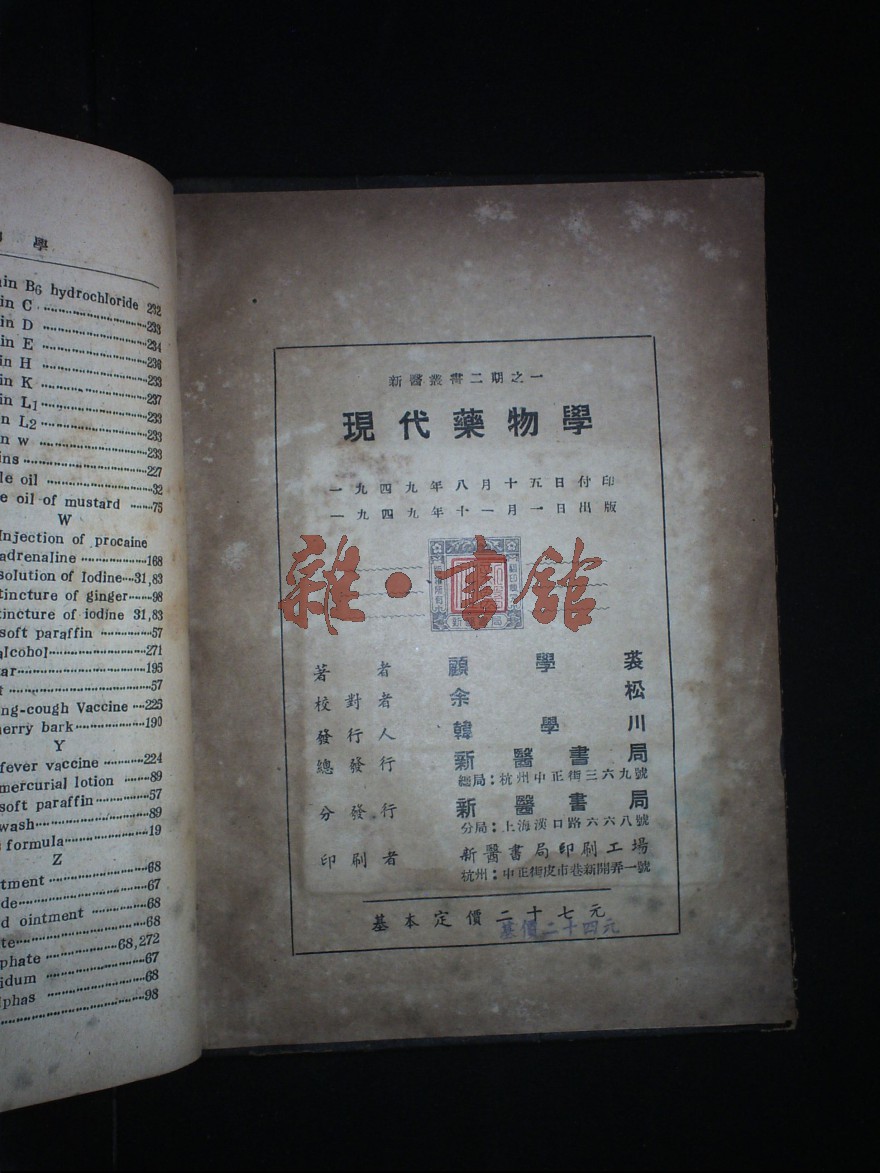 學
in B6 hydrochloride 232
in C 233
in D 233
in E 234
in H 236
in K 233
in L1 237
L2 233
w 233
ins 233
227
le oil 32
e oil of mustard 75
W
Injection of procaine
adrenaline 168
solution of Iodine 31,83
tincture of ginger 98
tincture of iodine 31,83
soft paraffin 57
alcohol 271
ar 195
57
ng-cough Vaccine 225
erry bark 190
Y
fever vaccine 224
mercurial lotion 89
soft paraffin 57
wash 89
s formula 19
Z
tment 68
de 67
d ointment 68
te 68
phate 68,272
idum 67
lphas 68
98
新醫叢書二期之一
現代藥物學
一九四九年八月十五日付印
一九四九年十一月一日出版
雜·書館
著者 顧學裘
校對者 余松
發行人 韓學川
總發行 新醫書局
總局：杭州中正街三六九號
分發行 新醫書局
分局：上海漢口路六六八號
印刷者 新醫書局印刷工場
杭州：中正街皮市巷新開弄一號
基本定價二十七元
基價二十四元